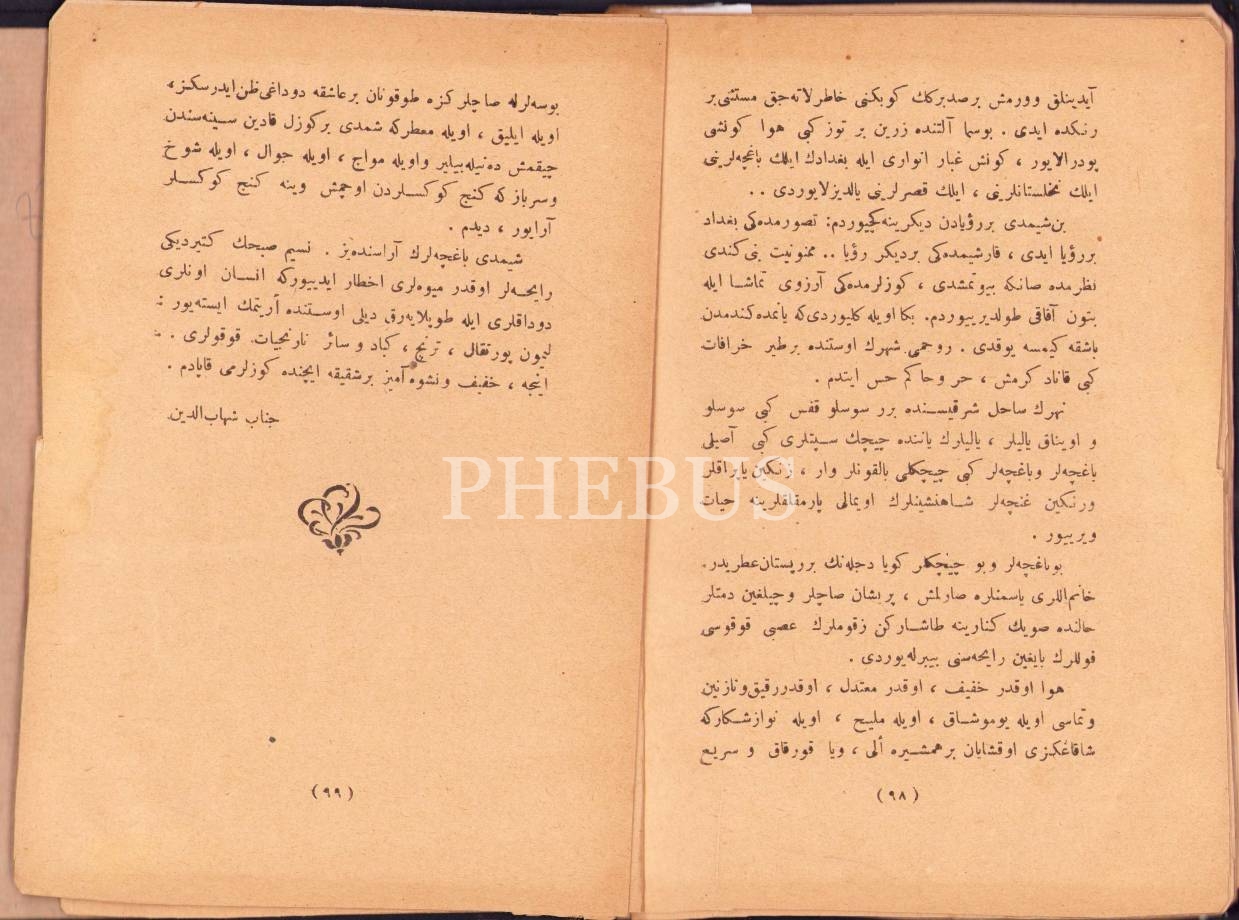 آیدینلق وورمش برصدبرکك کوبکنی خاطرلاته‌جق مستثنی بر
رنکده ایدی . بوسما آلتنده زرین بر توز کبی هوا کونشی
پودرالایور ، کونش غبار انواری ایله بغدادك ایلك باغچه‌لرینی
ایلك نخلستانلرینی ، ایلك قصرلرینی یالدیزلایوردی . .
بن‌شیمدی بررؤیادن دیکرینه‌کچیوردم: تصورمده‌کی بغداد
بررؤیا ایدی ، قارشیمده‌کی بردیکر رؤیا .. ممنونیت بنی کندی
نظرمده صانکه بیوتمشدی ، کوزلرمده‌کی آرزوی تماشا ایله
بتون آفاقی طولدیرییوردم. بکا اویله کلیوردی‌که یانمده‌کندمدن
باشقه کیمسه یوقدی . روحمی شهرك اوستنده برطیر خرافات
کبی قاناد کرمش ، حر وحاکم حس ایتدم .
نهرك ساحل شرقیسنده برر سوسلو قفس کبی سوسلو
و اویناق یالیلر ، یالیلرك یاننده چیچك سپتلری کبی آصیلی
باغچه‌لر وباغچه‌لر کبی چیچکلی بالقونلر وار ، زنکین یاپراقلر
ورنکین غنچه‌لر شاهنشینلرك اویمالی پارمقلقلرینه حیات
ویرییور .
بوباغچه‌لر وبو چیچکلر کویا دجله‌نك بررپستان‌عطریدر.
خانم‌اللری یاسمنلره صارلمش ، پریشان صاچلر وچیلغین دمتلر
حالنده صویك کنارینه طاشارکن زقوملرك عصبی قوقوسی
فوللرك بایغین رایحه‌سنی بیبرله‌یوردی .
هوا اوقدر خفیف ، اوقدر معتدل ، اوقدررقیق‌ونازنین
وتماسی اویله یوموشاق ، اویله ملیح ، اویله نوازشکارکه
شاقاغکزی اوقشایان برهمشیره ألی ، ویا قورقاق و سریع
( ٩٨ )
بوسه‌لرله صاچلرکزه طوقونان برعاشقه دوداغی‌ظن‌ایدرسکز،
اویله ایلیق ، اویله معطرکه شمدی برکوزل قادین سینه‌سندن
چیقمش ده‌نیله‌بیلیر واویله مواج ، اویله جوال ، اویله شوخ
وسربازکه کنج کوکسلردن اوچمش وینه کنج کوکسلر
آرایور ، دیدم .
شیمدی باغچه‌لرك آراسنده‌یز . نسیم صبحك کتیردیکی
رایحه‌لر اوقدر میوه‌لری اخطار ایدییورکه انسان اونلری
دوداقلری ایله طوپلایه‌رق دیلی اوستنده أریتمك ایسته‌یور :
لیمون پورتقال ، ترنج ، کباد و سائر نارنجیات قوقولری .
اینجه ، خفیف ونشوه‌آمیز برشقیقه ایچنده کوزلرمی قاپادم .
جناب شهاب‌الدین
( ٩٩ )
PHEBUS